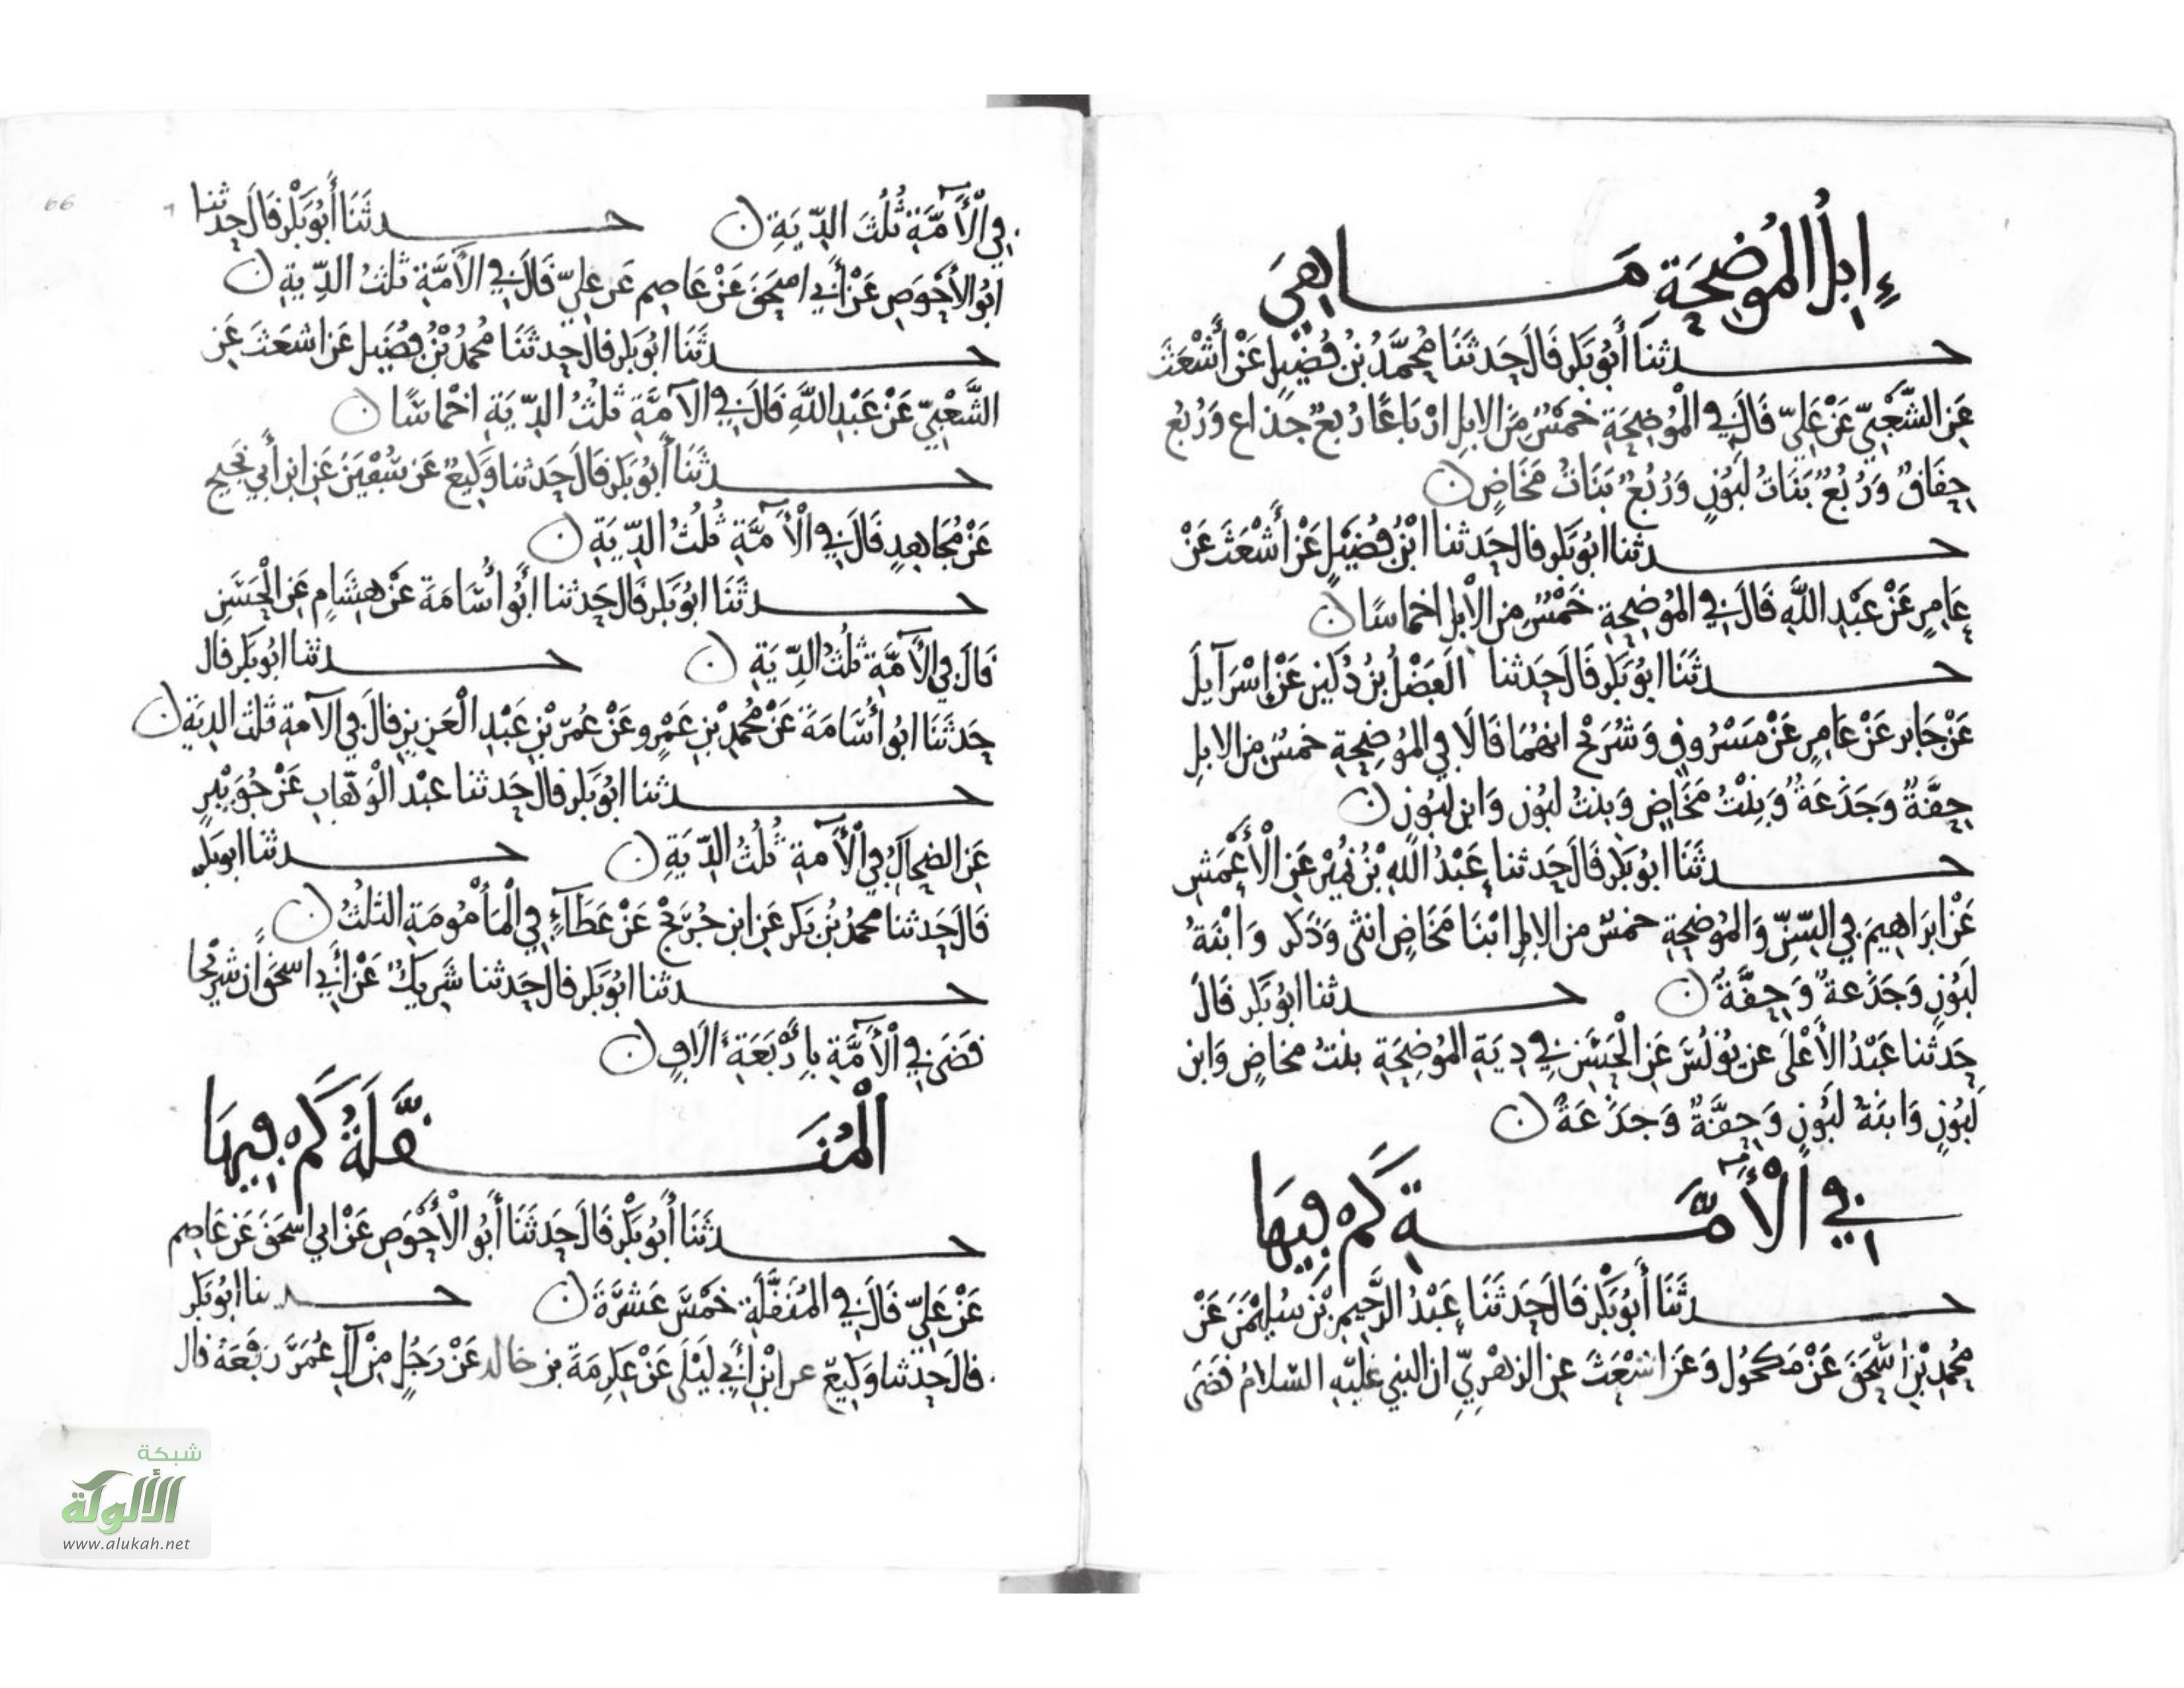 إِبِلُ المُوضِحَةِ مَا هِيَ
حدثنا أَبُو بَكْر قَالَ حَدثَنَا مُحَمَّدُ بْنُ فُضَيْلٍ عَنْ أَشْعَثَ
عَنِ الشَّعْبِيّ عَنْ عَلِيّ قَالَ فِي الْمُوْضِحَةِ خَمْسٌ مِنَ الابِلِ ارْبَاعًا رُبعٌ جِذاع وَرُبُع
حِقَاقٌ وَرُبُعٌ بَنَاتُ لَبُوْنٍ وَرُبُعٌ بَنَاتُ مَخَاضٍ ن
حدثنا ابُو بَكر قال حَدثنا ابْنُ فُضَيْلٍ عَنْ أَشْعَثَ عَنْ
عَامِرٍ عَنْ عَبْدِ اللَّهِ قَالَ فِي المُوضِحةِ خَمْسٌ من الْابل اخماسًا ن
حدثَنَا ابُو بَكر قَالَ حَدثنا الفَضْلُ بنُ دُكَيْنٍ عَنْ إِسْرَآيلَ
عَنْ جَابر عَنْ عَامِرٍ عَنْ مَسْرُوقٍ وَشُرَيْح انهُمَا قَالَا في المُوضِحةِ خمسٌ من الابلِ
حِقَّةٌ وَجَذَعَةٌ وَبِنْتُ مَخَاضٍ وَبنتُ لبُون وَابن لبُونٍ ن
حدثَنَا ابُو بَكر قَالَ حَدثنا عَبْدُ اللَّهِ بْنُ نُمَيْرٍ عَنِ الْأَعْمَشِ
عَنْ ابرَاهِيم في السِّنِّ وَالمُوضحةِ خمسٌ من الابلِ ابْنَتا مَخَاضٍ انثى وَذَكر وَابْنَةُ
لَبُوْنٍ وَجَذَعةٌ وَحِقَّةٌ ن حدثنا ابُو بَكر قَالَ
حَدثنا عَبْدُ الأَعْلَى عن يُونُسَ عَنِ الْحَسَنِ فِي دِيَةِ المُوضِحَةِ بنتُ مخاضٍ وَابن
لَبُوْنٍ وَابنَةُ لَبُوْنٍ وَحِقَّةٌ وَجَذَعَةٌ ن
فِي الْأَمَّةِ كَم فِيهَا
حدثَنَا أَبُو بَكْر قَالَ حَدثَنَا عَبْدُ الرَّحِيمِ بْن سُلَيْمٰنَ عَنْ
مُحَمدِ بْنِ اسْحَقَ عَنْ مَكحُول وَعَن اشْعَثَ عن الزهْرِيِّ ان النبي عَلَيْهِ السّلامُ قضَى
فِي الْأَمَّةِ ثُلُثَ الدِّيَةِ ن حدثَنَا أَبُو بَكْر قَالَ حدثنا
ابُو الأَحْوَصِ عَنْ أَبِي اسحَقَ عَنْ عَاصِم عَن عَلِيّ قَالَ فِي الآمَّةِ ثلثُ الدِّيةِ ن
حدثَنَا ابُو بَكر قال حدثَنَا مُحمدُ بْنُ فُضَيل عَن اشعَثَ عَنِ
الشَّعْبِيّ عَنْ عَبْدِ اللَّهِ قَالَ فِي الآمَّةِ ثلثُ الدِّيَةِ اخمَاسًا ن
حدثَنَا أَبُو بَكر قَالَ حَدثنا وَكِيعٌ عَن سُفْيٰنَ عَنِ ابن أَبِي نَجيح
عَنْ مُجَاهِدٍ قَالَ فِي الْأَمَّةِ ثُلثُ الدِّيَةِ ن
حدثَنَا ابُو بَكر قَالَ حَدثنا أَبُو أُسَامَةَ عَنْ هِشَامٍ عَنِ الْحَسَنِ
قَالَ فِي الأَمَّةِ ثلثُ الدِّيَةِ ن حدثنا ابُو بَكر قال
حَدثَنَا ابُو أُسَامَةَ عَنْ مُحمدِ بْنِ عَمْرٍو عَنْ عُمَر بْنِ عَبْدِ الْعَزِيز قالَ في الآمةِ ثلث الديَة ن
حدثنا ابُو بَكر قال حَدثنا عبْد الْوَهَّابِ عَنْ جُوَيْبِرٍ
عَنِ الضحاكِ في الْأَمةِ ثُلثُ الدِّيَةِ ن حدثنا ابو بَكر
قَالَ حَدثنا محمدُ بنُ بَكر عَنِ ابن جُرَيْج عَنْ عَطَآءٍ في الْمَأْمُومَةِ الثلثُ ن
حدثنا ابُو بَكر قال حَدثنا شَرِيكٌ عَنْ أَبِي اسحَقَ أن شُرَيْحا
قضَى فِي الْأَمَّةِ بِأَرْبَعَةِ الَافٍ ن
الْمُنَقَّلَةُ كَم فِيهَا
حدثَنَا أَبُو بَكْر قَالَ حَدثَنَا أَبُو الْأَحْوَصِ عَنْ ابي اسحَقَ عَنْ عَاصِم
عَنْ عَلِيّ قَالَ فِي المُنَقَّلَةِ خَمْسَ عَشَرَةَ ن حدثنا ابُو بَكر
قالَ حَدثنا وَكِيعٌ عن ابْنِ أَبِي لَيْلَى عَنْ عِكرِمَةَ بن خالد عَنْ رَجُلٍ مِنْ آلِ عُمَرَ رَفَعَهُ قال
66
شبكة
الألوكة
www.alukah.net